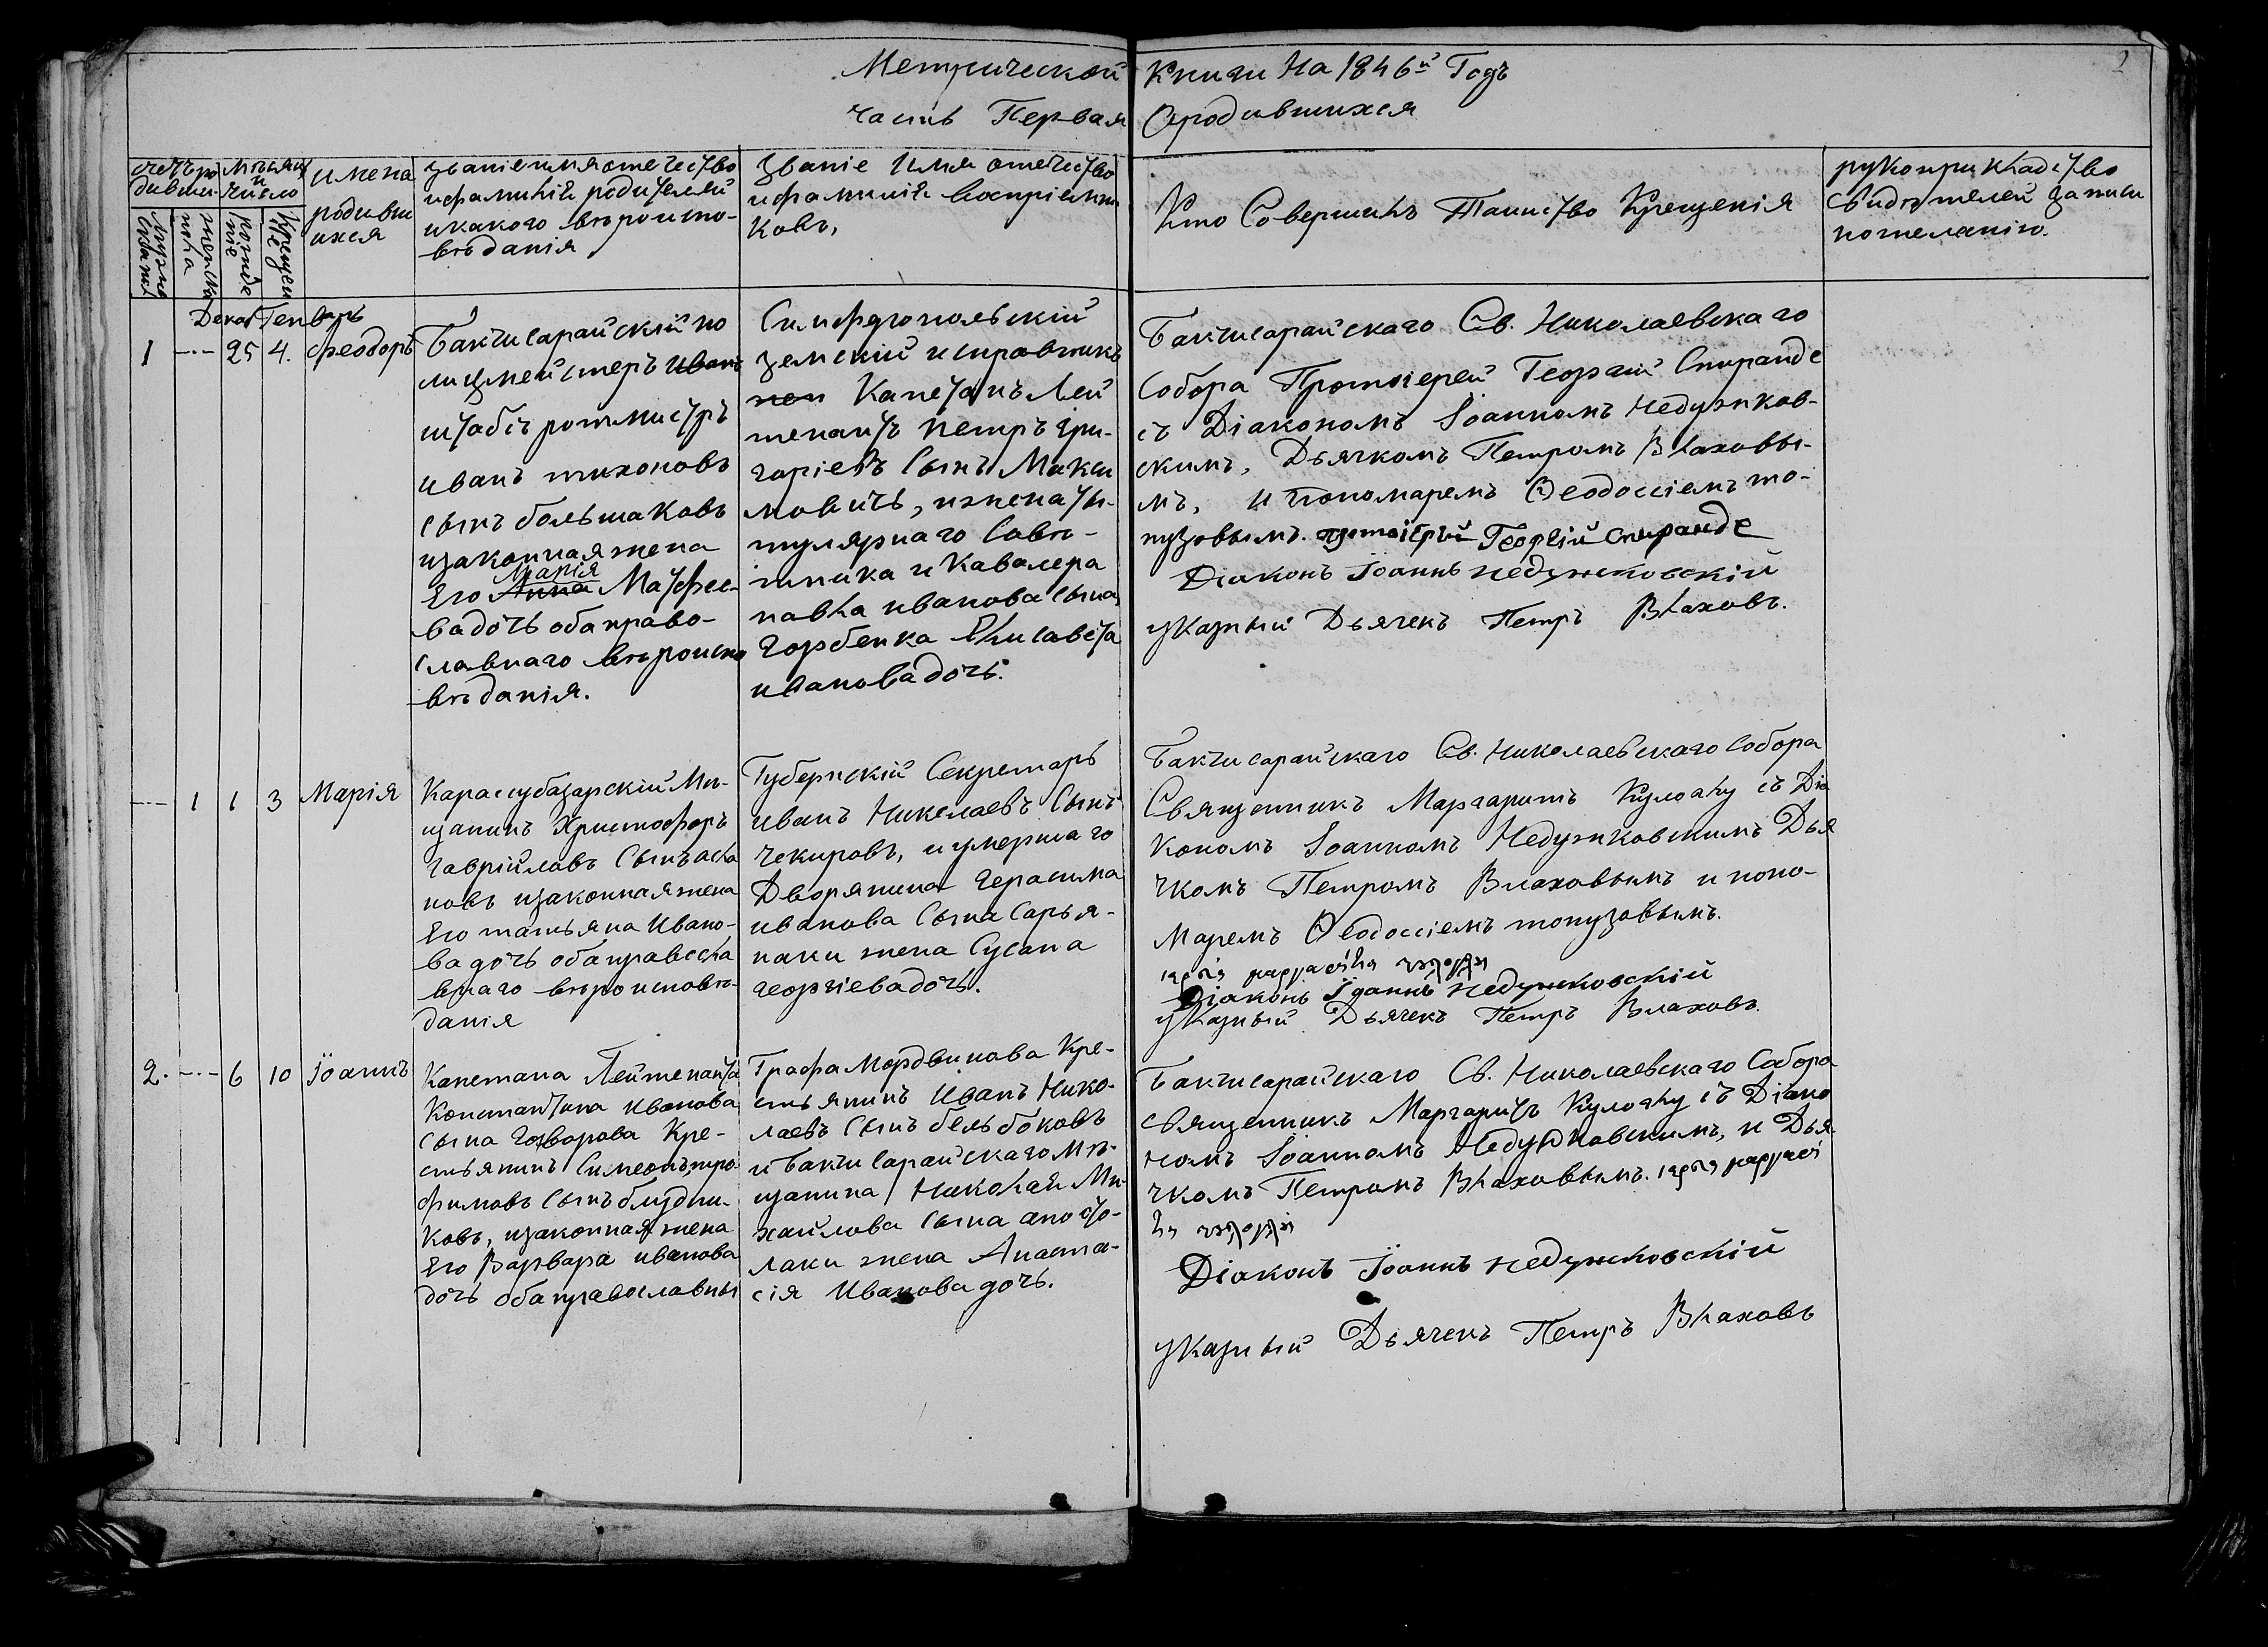 Метрической Книги На 1846й Годъ
Часть Первая Ородившихся
2
счетъ ро
дивши-
Мѣсяцъ
и
Число
имена
родивш
ихся
званіе имя отечество
ифамилія родителей
икакого вѣроиспо-
вѣданія
Званіе Имя отечество
ифамилія воспріемни
ковъ,
Кто Совершилъ Таинство Крещенія
рукоприкладство
Свидѣтелей записи
пожеланію.
женска
пола
рожде
ніе
Крещен
іе
Декаб Генварь
1 -·- 25 4. Феодоръ
Бакчисарайскій по
лицмейстеръ Иванъ
штабсъ ротмистръ
иванъ тихоновъ
сынъ большаковъ
изаконная жена
Марія
Его Анна Матфее-
ва дочь оба право-
славнаго вѣроиспо
вѣданія.
Симферопольскій
земскій исправникъ
Капетанъ Лей
тенантъ Петръ гри-
горіевъ Сынъ Макси
мовичь, ижена ты-
тулярнаго Совѣ-
тника и Кавалера
павла иванова сына
Горбенка Елисавета
иванова дочь.
Бакчисарайскаго Св. Николаевскаго
Собора Протоіерей Георгій Спиранде
съ Діакономъ Іоанномъ Недужков-
скимъ, Дьячкомъ Петромъ Влаховы-
мъ, и Пономаремъ Ѳеодоссіемъ то-
пузовымъ. протоіерей Георгій Спиранде
Діаконъ Іоаннъ Недужковскій
указный Дьячекъ Петръ Влаховъ.
--- 1 1 3 Марія
Карасубазарскій Мѣ-
щанинъ Христофоръ
Гавріиловъ Сынъ асла
новъ изаконная жена
Его татьяна Ивано-
ва дочь оба правосла
внаго вѣроисповѣ-
данія
Губернскій Секретарь
иванъ Николаевъ Сынъ
Чекировъ, иумершаго
Дворянина Герасима
иванова Сына Сарья-
наки жена Сусана
георгіева дочь.
Бакчисарайскаго Св. Николаевскаго Собора
Священникъ Маргаритъ Кулоглу съ Діа
кономъ Іоанномъ Недужковскимъ Дья
чкомъ Петромъ Влаховымъ и поно-
маремъ Ѳеодоссіемъ топузовымъ.
Діаконъ Іоаннъ Недужковскій
указный Дьячекъ Петръ Влаховъ.
2. -·- 6 10 Іоаннъ
Капетана Лейтенанта
Константина Иванова
сына Говорова Кре-
стьянинъ Симеонъ тро-
фимовъ сынъ блудни-
ковъ, изаконная жена
Его Варвара иванова
дочь оба православныи
Графа Мордвинова Кре-
стьянинъ Иванъ Нико-
лаевъ Сынъ бельбоковъ
и Бакчисарайскаго Мѣ-
щанина Николая Ми-
хайлова сына апосто-
лаки жена Анаста-
сія Иванова дочь.
Бакчисарайскаго Св. Николаевскаго Собора
священникъ Маргаритъ Кулоглу съ Діако
номъ Іоанномъ Недужковскимъ, и Дья
чкомъ Петромъ Влаховымъ.
Діаконъ Іоаннъ Недужковскій
указный Дьячекъ Петръ Влаховъ